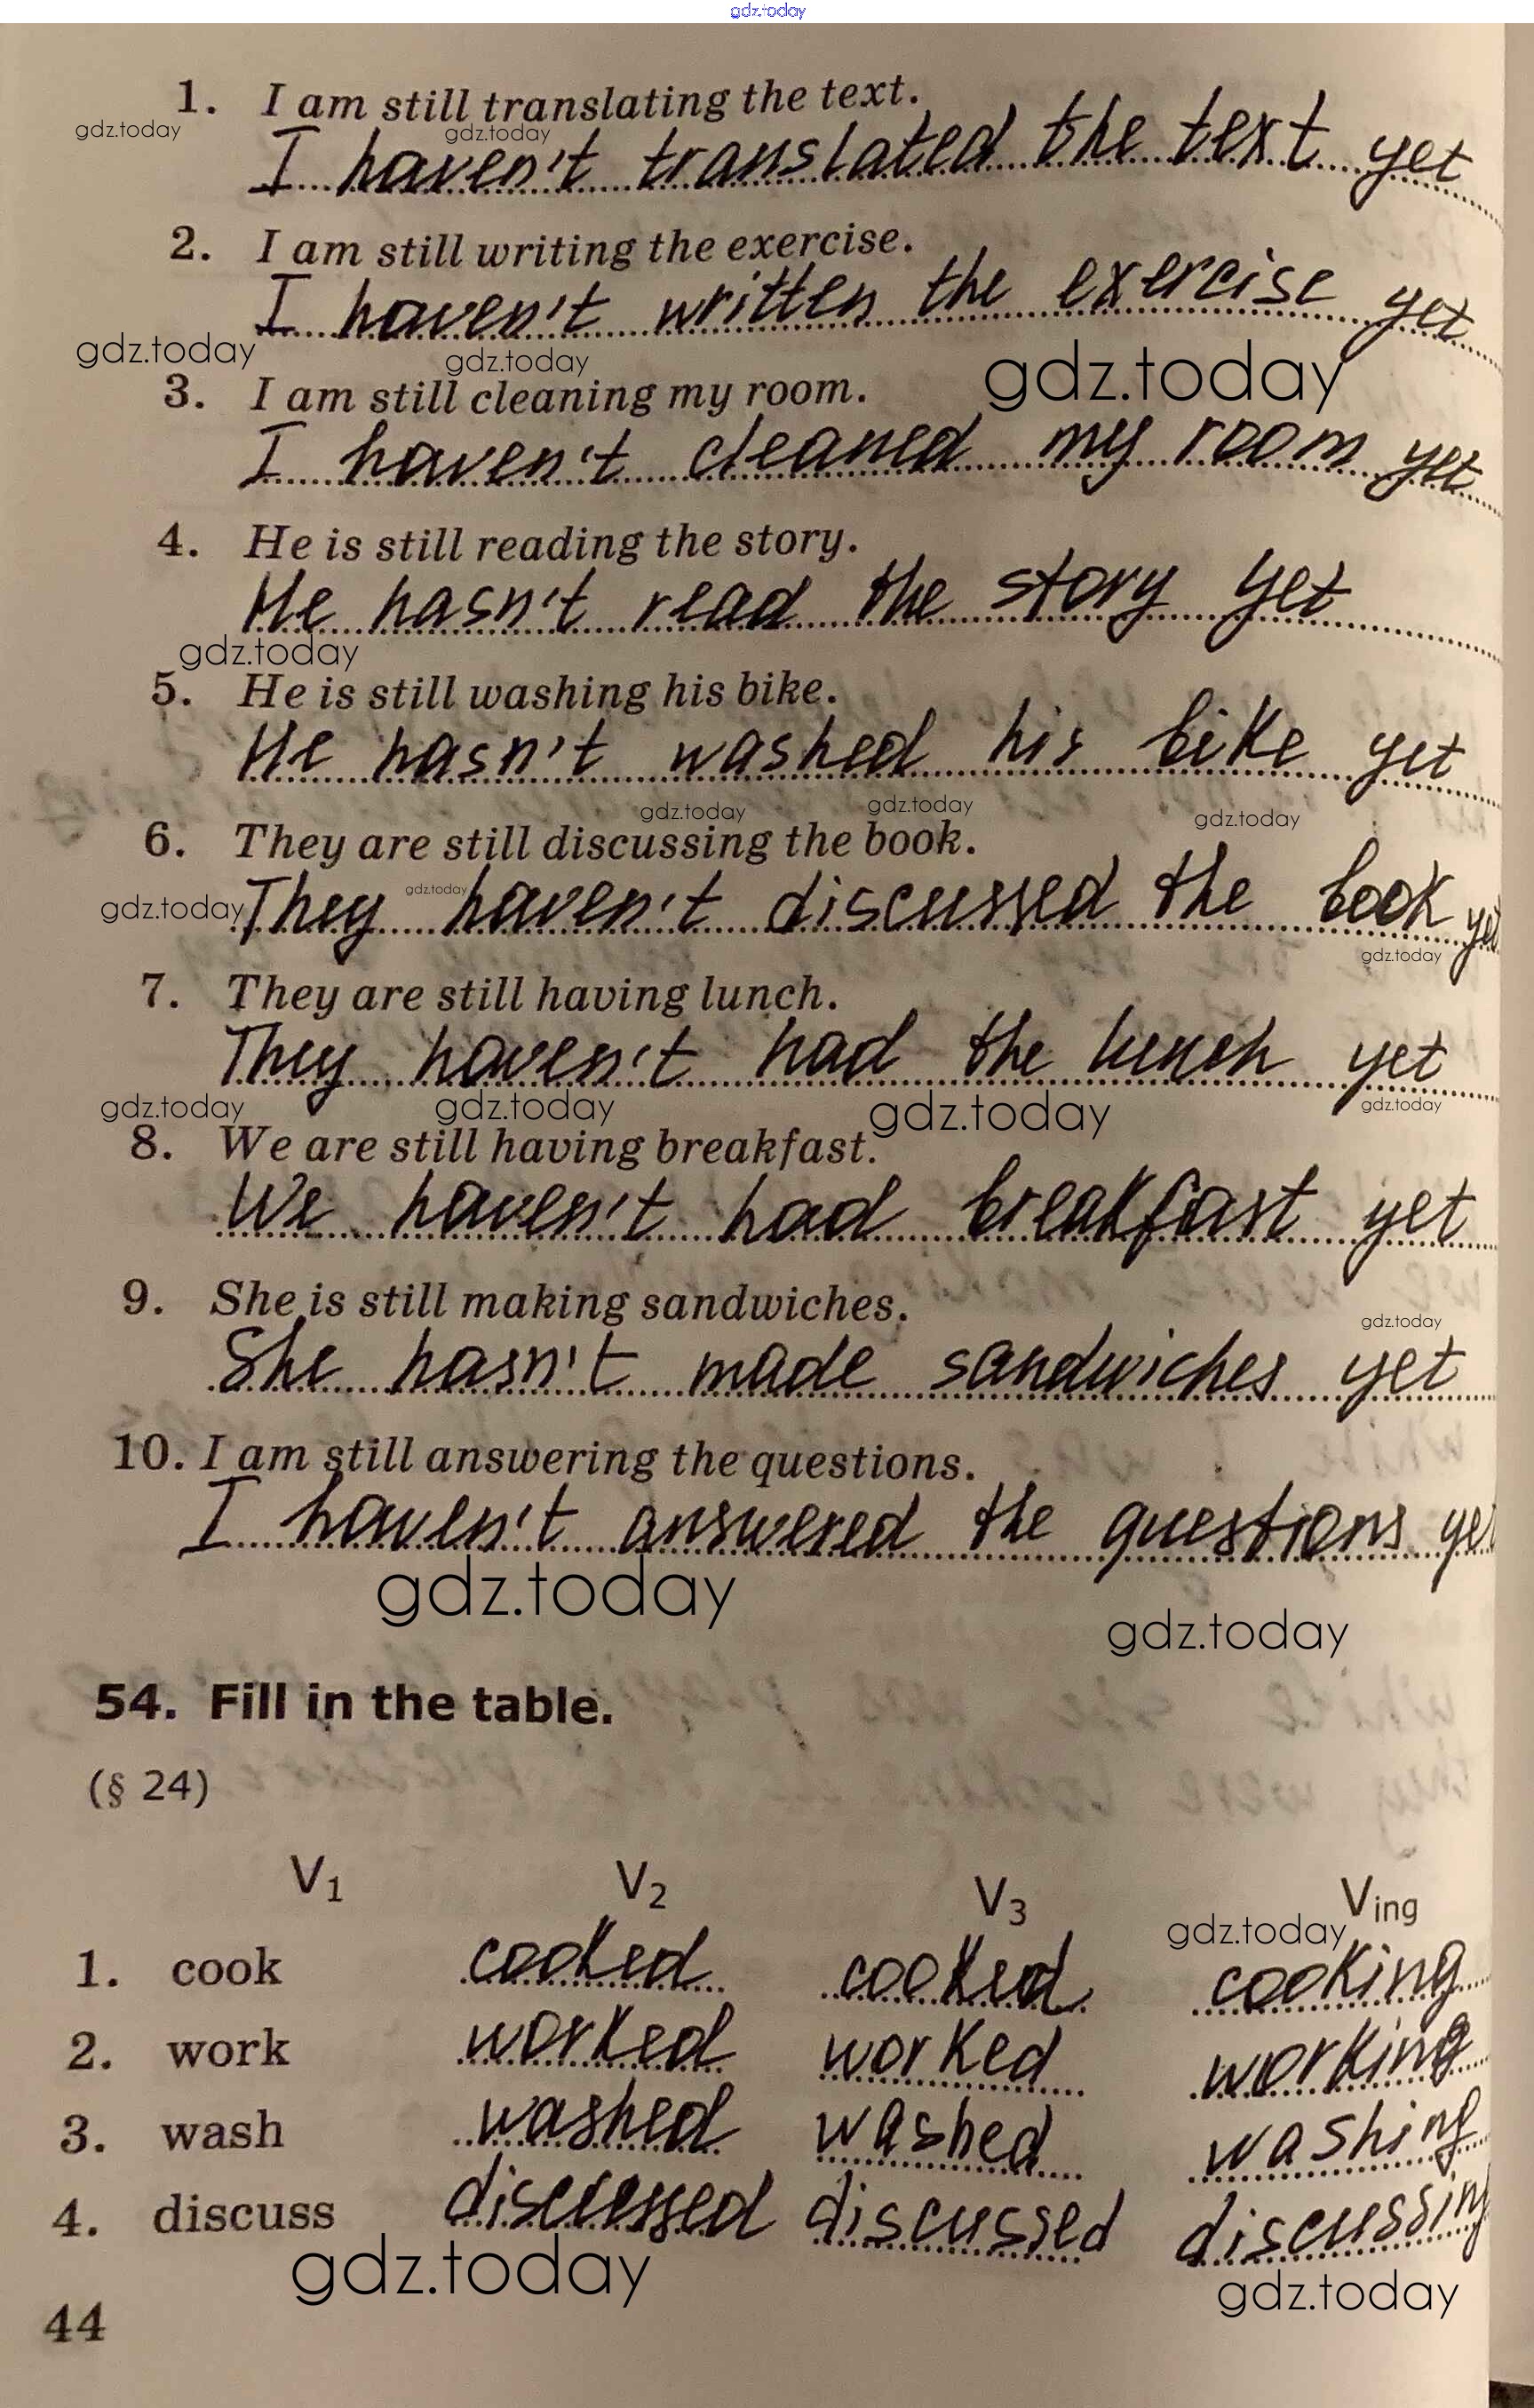 gdz.today
1. I am still translating the text.
gdz.today gdz.today
I haven't translated the text yet
2. I am still writing the exercise.
I haven't written the exercise yet
gdz.today gdz.today gdz.today
3. I am still cleaning my room.
I haven't cleaned my room yet
4. He is still reading the story.
He hasn't read the story yet
gdz.today
5. He is still washing his bike.
He hasn't washed his bike yet
gdz.today gdz.today gdz.today
6. They are still discussing the book.
gdz.today gdz.today
They haven't discussed the book yet
gdz.today
7. They are still having lunch.
They haven't had the lunch yet
gdz.today gdz.today gdz.today gdz.today
8. We are still having breakfast.
We haven't had breakfast yet
9. She is still making sandwiches.
gdz.today
She hasn't made sandwiches yet
10. I am still answering the questions.
I haven't answered the questions ye
gdz.today
gdz.today
54. Fill in the table.
(§ 24)
V1 V2 V3 Ving
gdz.today
1. cook cooked cooked cooking
2. work worked worked working
3. wash washed washed washing
4. discuss discussed discussed discussing
gdz.today
gdz.today
44